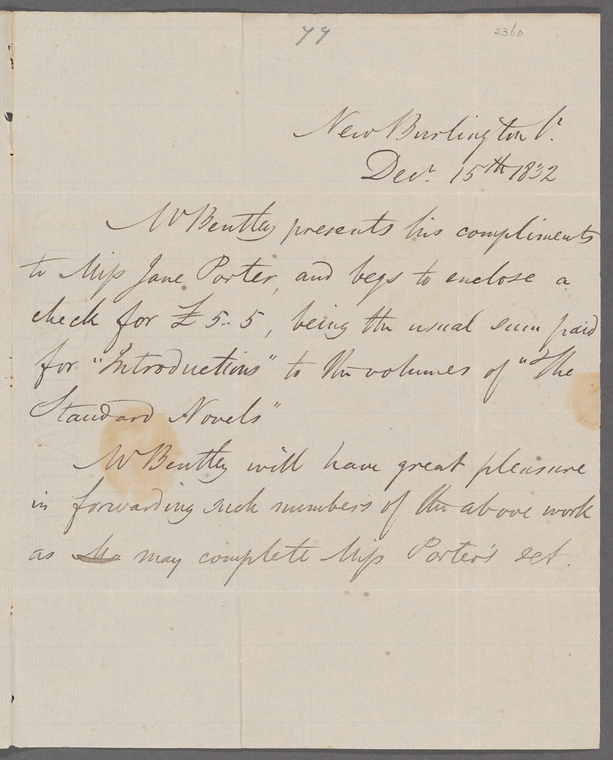 77
2360
New Burlington St.
Decr. 15th 1832
Mr Bentley presents his compliments
to Miss Jane Porter, and begs to enclose a
check for £5..5, being the usual sum paid
for "Introductions" to the volumes of "The
Standard Novels"
Mr Bentley will have great pleasure
in forwarding such numbers of the above work
as may complete Miss Porter's set.